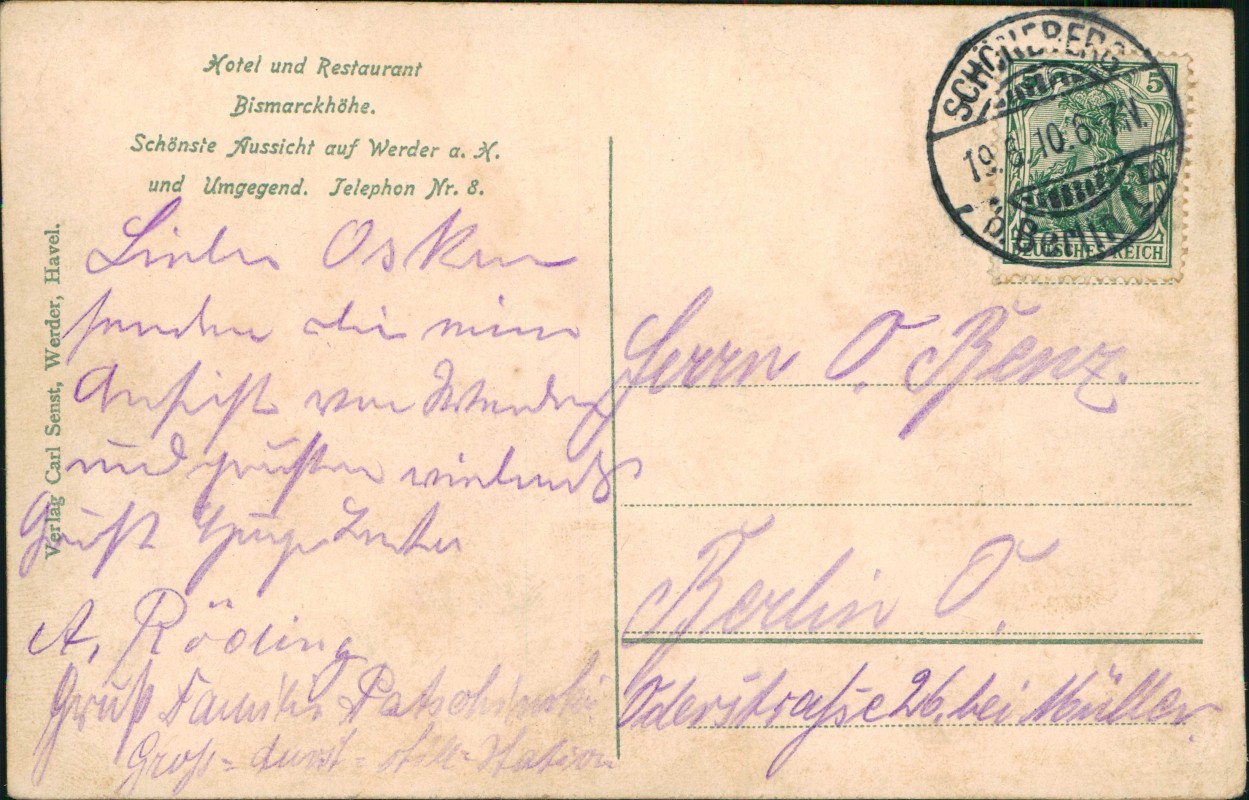 Hotel und Restaurant
Bismarckhöhe.
Schönste Aussicht auf Werder a. H.
und Umgegend. Telephon Nr. 8.
Verlag Carl Senst, Werder, Havel.
Lieber Oskar
senden dir eine
Ansicht von Werder
und grüßen vielmals
Gruß
A. Röding
Gruß Familie
Groß-durst-still-Station
SCHÖNEBERG
19.6.10.6-7N.
b. Berlin
5
DEUTSCHES REICH
Herrn O. Benz.
Berlin O.
Oderstraße 26. bei Müller.